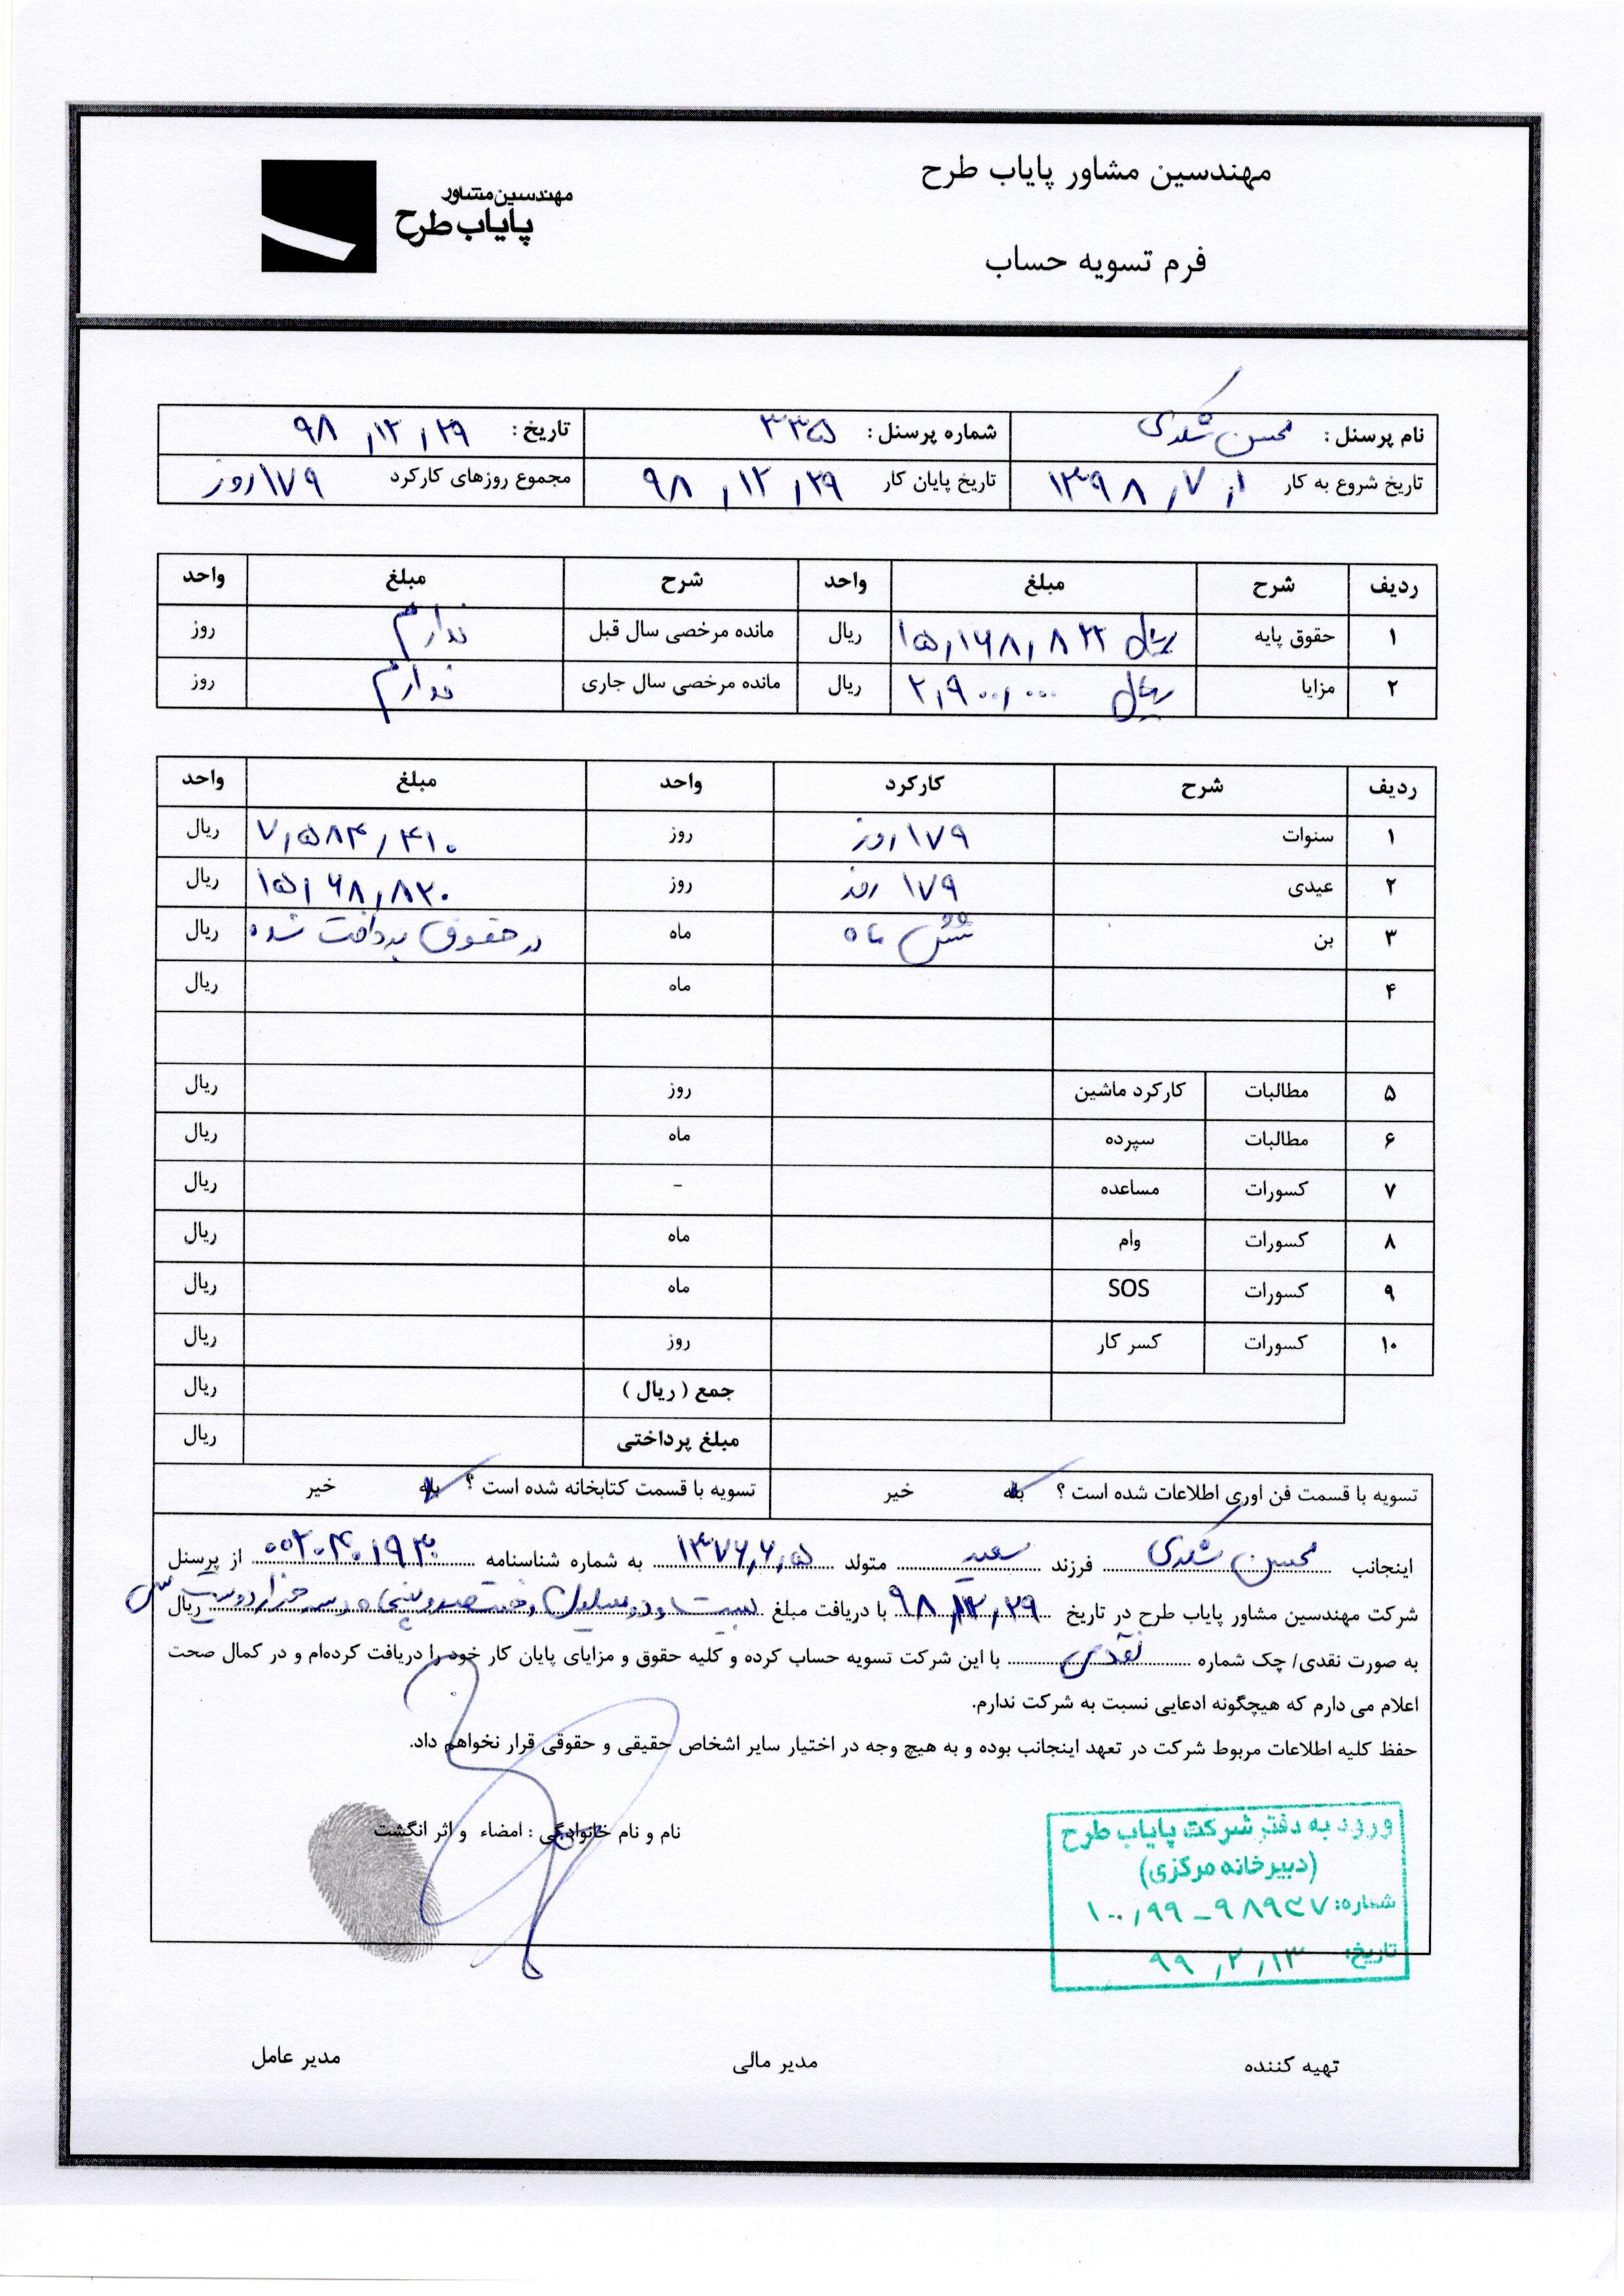 مهندسین مشاور پایاب طرح
فرم تسویه حساب
مهندسین مشاور
پایاب طرح
نام پرسنل : محسن شماره پرسنل : ۳۳۵ تاریخ : ۹۸/۱۲/۲۹
تاریخ شروع به کار از ۱۳۹۸/۷ تاریخ پایان کار ۹۸/۱۲/۲۹ مجموع روزهای کارکرد ۱۷۹ روز
ردیف شرح مبلغ واحد شرح مبلغ واحد
۱ حقوق پایه ۱۵,۱۶۸,۸۲۲ ریال ریال مانده مرخصی سال قبل ندارم روز
۲ مزایا ۲,۹۰۰,۰۰۰ ریال ریال مانده مرخصی سال جاری ندارم روز
ردیف شرح کارکرد واحد مبلغ واحد
۱ سنوات ۱۷۹ روز روز ۷,۵۸۴,۴۱۰ ریال
۲ عیدی ۱۷۹ روز روز ۱۵,۱۶۸,۸۲۰ ریال
۳ بن شش ماه ماه در حقوق پرداخت شده ریال
۴ ماه ریال
۵ مطالبات کارکرد ماشین روز ریال
۶ مطالبات سپرده ماه ریال
۷ کسورات مساعده - ریال
۸ کسورات وام ماه ریال
۹ کسورات SOS ماه ریال
۱۰ کسورات کسر کار روز ریال
جمع ( ریال ) ریال
مبلغ پرداختی ریال
تسویه با قسمت فن اوری اطلاعات شده است ؟ بله خیر تسویه با قسمت کتابخانه شده است ؟ بله خیر
اینجانب محسن فرزند سعید متولد ۱۳۷۶/۶/۵ به شماره شناسنامه از پرسنل
شرکت مهندسین مشاور پایاب طرح در تاریخ ۹۸/۱۲/۲۹ با دریافت مبلغ بیست و دو میلیون و هفتصد و پنجاه و سه هزار و دویست و سی ریال
به صورت نقدی/ چک شماره نقدی با این شرکت تسویه حساب کرده و کلیه حقوق و مزایای پایان کار خود را دریافت کرده‌ام و در کمال صحت
اعلام می دارم که هیچگونه ادعایی نسبت به شرکت ندارم.
حفظ کلیه اطلاعات مربوط شرکت در تعهد اینجانب بوده و به هیچ وجه در اختیار سایر اشخاص حقیقی و حقوقی قرار نخواهم داد.
نام و نام خانوادگی : امضاء و اثر انگشت
ورود به دفتر شرکت پایاب طرح
(دبیرخانه مرکزی)
شماره: ۱۰۰/۹۹-۹۸۹۴۷
تاریخ: ۹۹/۲/۱۳
تهیه کننده مدیر مالی مدیر عامل